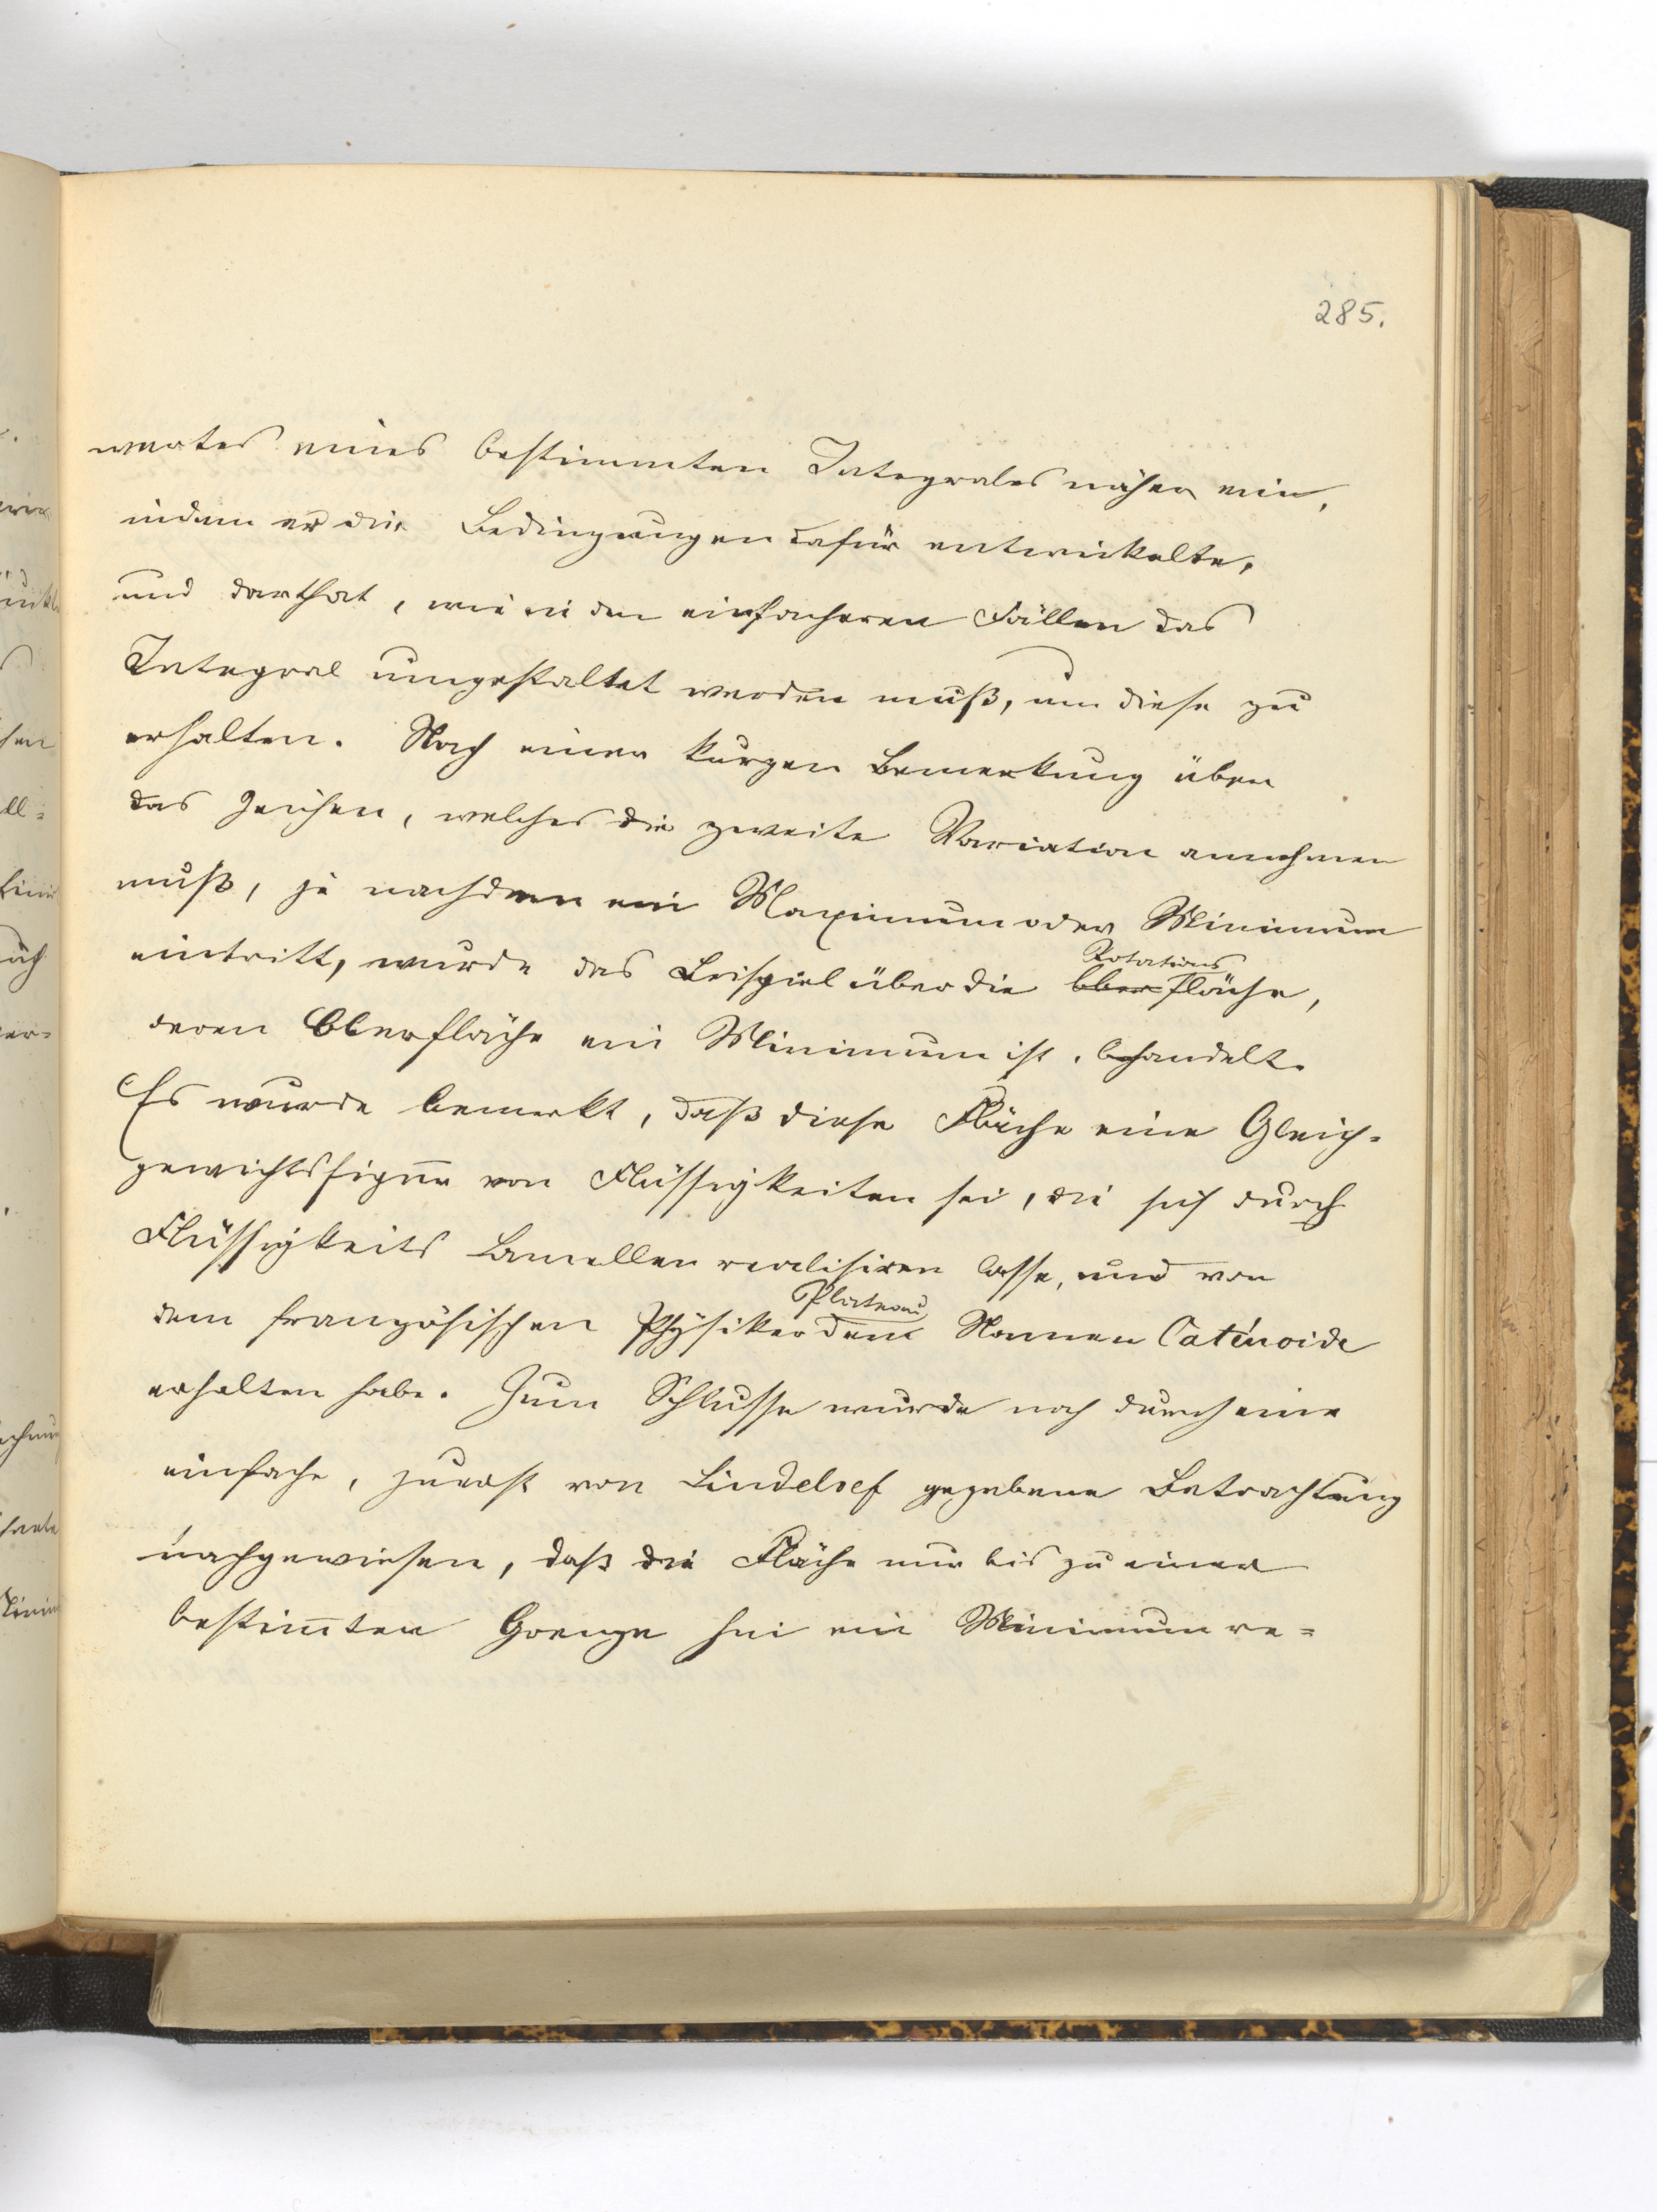 285.
wertes eines bestimmten Integrales näher ein,
indem er die Bedingungen dafür entwickelte,
und darthat, wie in den einfacheren Fällen das
Integral umgestaltet werden muß, um diese zu
erhalten. Nach einer kurzen Bemerkung über
das Zeichen, welches die zweite Variation annehmen
muß, je nachdem ein Maximum oder Minimum
Rotations
eintritt, wurde das Beispiel über die Oberfläche,
deren Oberfläche ein Minimum ist, behandelt.
Es wurde bemerkt, daß diese Fläche eine Gleich-
gewichtsfigur von Flüssigkeiten sei, die sich durch
Flüssigkeits Lamellen realisiren lasse, und von
Plateau
dem französischen Physiker den Namen Caténoide
erhalten habe. Zum Schlusse wurde noch durch eine
einfache, zuerst von Lindeloef gegebene Betrachtung
nachgewiesen, daß die Fläche nur bis zu einer
bestim̅ten Grenze hin ein Minimum re=